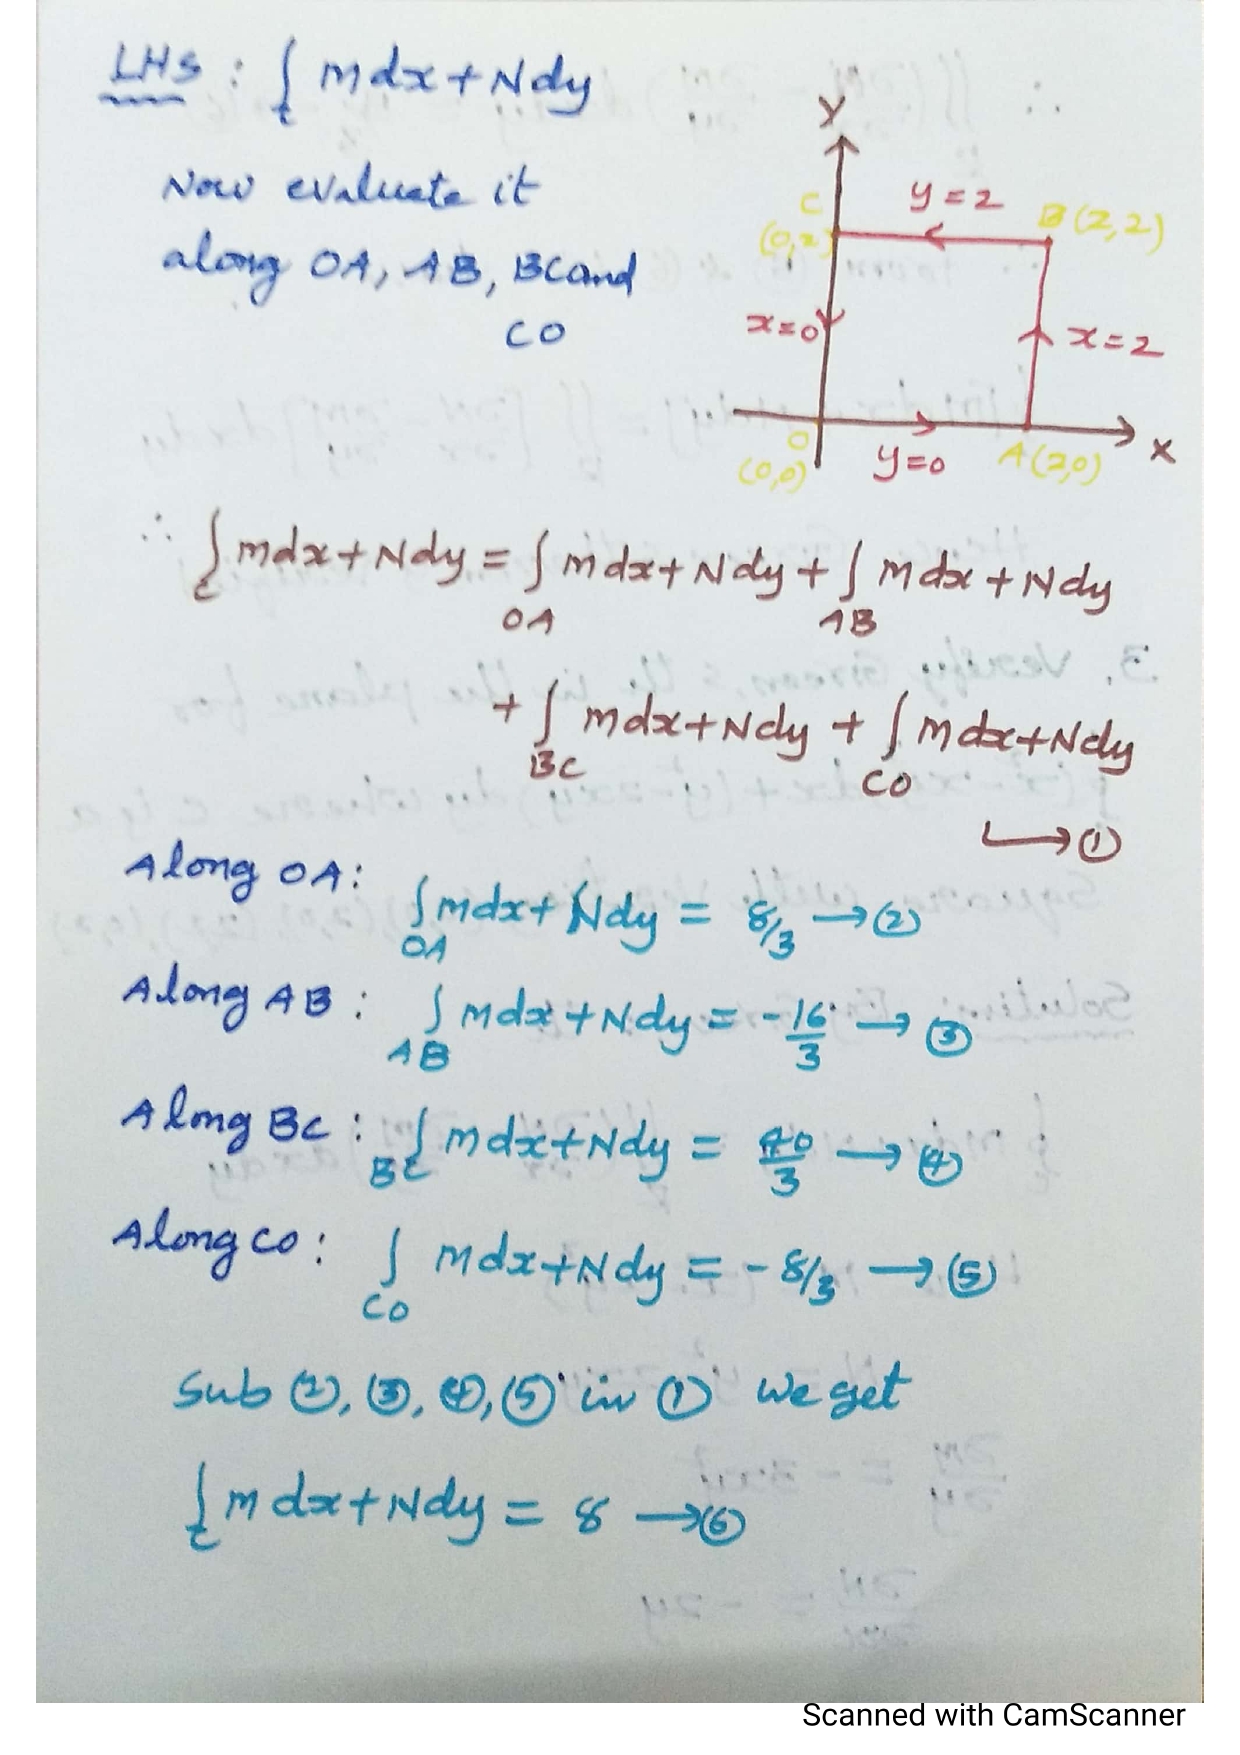 LHS : ∫_C Mdx + Ndy
Now evaluate it
along OA, AB, BC and
CO
Y
C
(0,2)
y = 2
B (2,2)
x=0
x = 2
O
(0,0)
y=0
A (2,0)
X
∴ ∫_C Mdx + Ndy = ∫_OA Mdx + Ndy + ∫_AB Mdx + Ndy
+ ∫_BC Mdx + Ndy + ∫_CO Mdx + Ndy
↳ ①
Along OA:
∫_OA Mdx + Ndy = 8/3 → ②
Along AB : ∫_AB Mdx + Ndy = -16/3 → ③
Along BC : ∫_BC Mdx + Ndy = 40/3 → ④
Along CO : ∫_CO Mdx + Ndy = - 8/3 → ⑤
Sub ②, ③, ④, ⑤ in ① we get
∫_C Mdx + Ndy = 8 → ⑥
Scanned with CamScanner